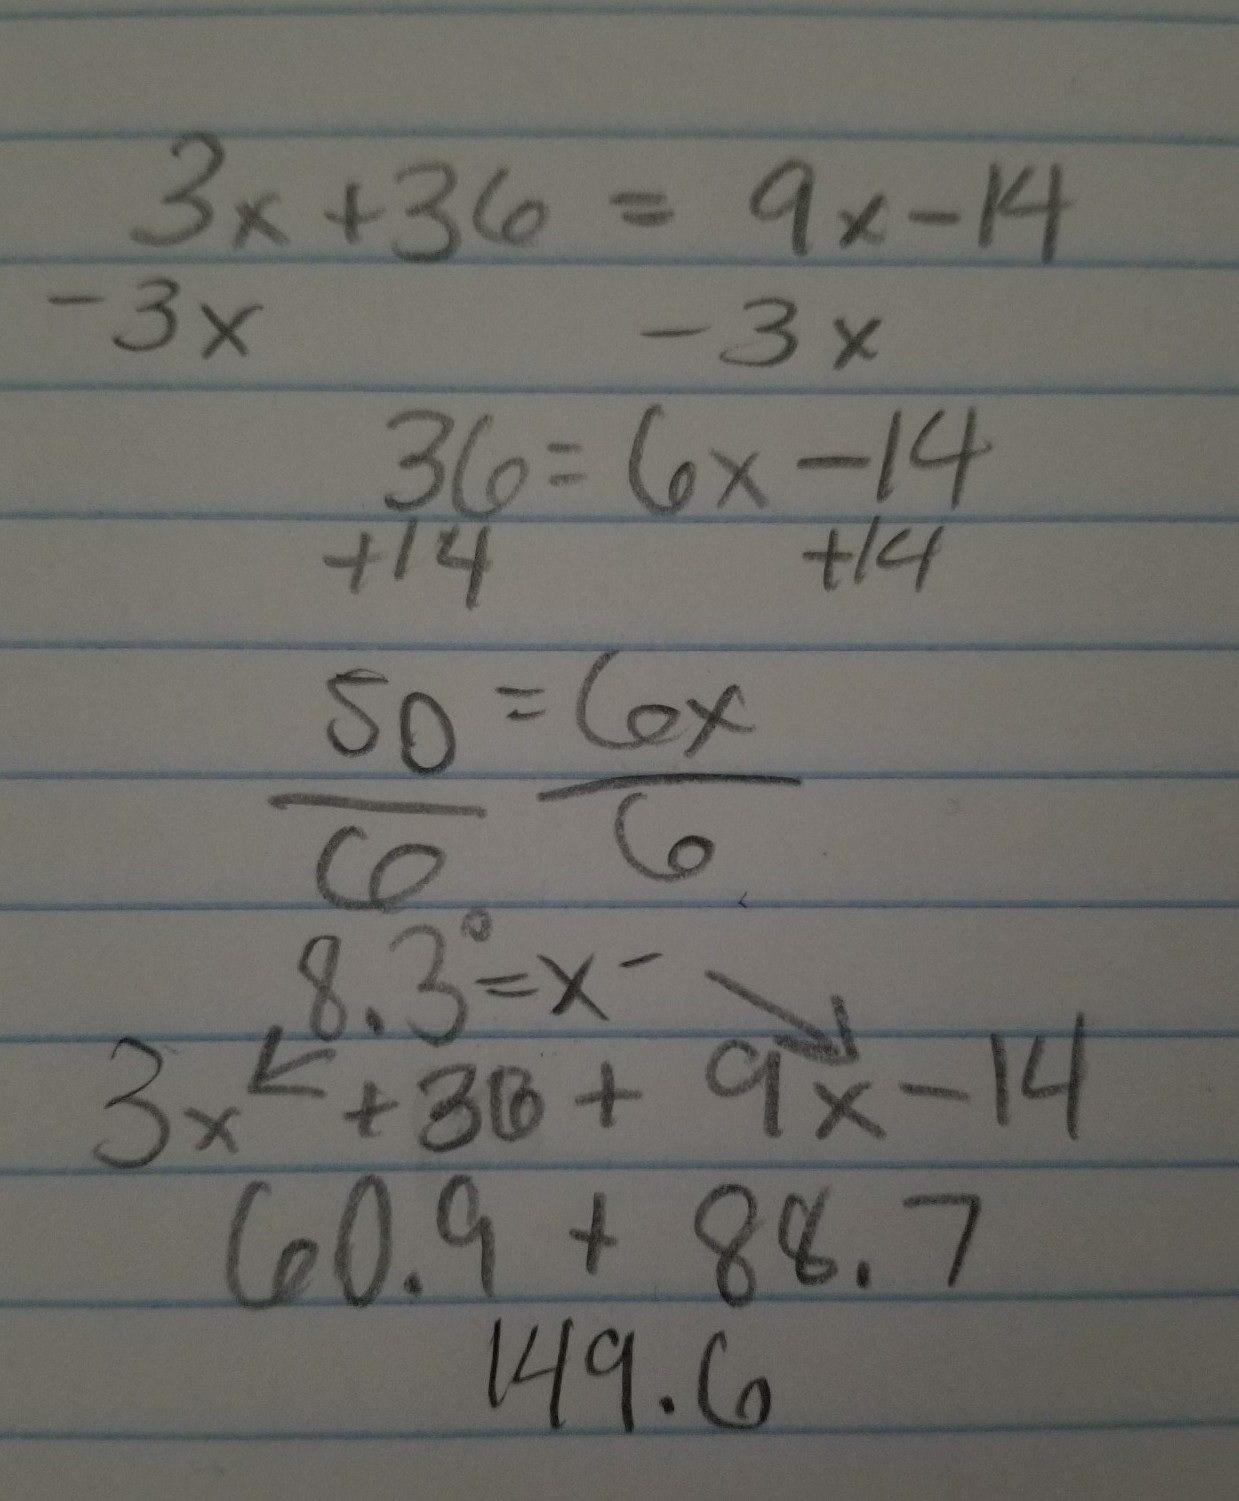 3x + 36 = 9x - 14
-3x -3x
36 = 6x - 14
+14 +14
50 = 6x
6 6
8.3° = x -
3x + 36 + 9x - 14
60.9 + 88.7
149.6